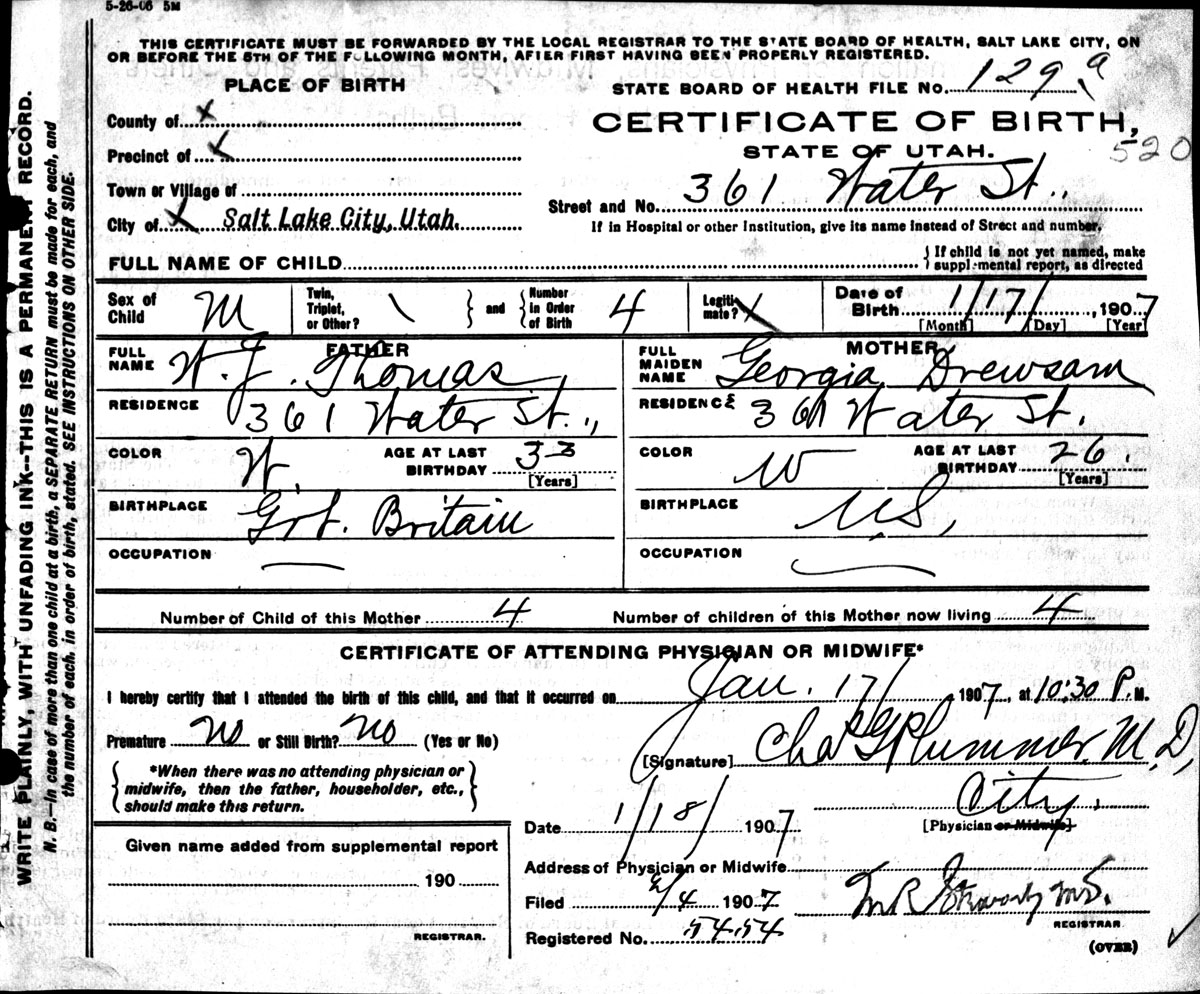 5-26-06 5M
THIS CERTIFICATE MUST BE FORWARDED BY THE LOCAL REGISTRAR TO THE STATE BOARD OF HEALTH, SALT LAKE CITY, ON
OR BEFORE THE 5TH OF THE FOLLOWING MONTH, AFTER FIRST HAVING BEEN PROPERLY REGISTERED.
PLACE OF BIRTH
STATE BOARD OF HEALTH FILE No. 129 a
County of X
CERTIFICATE OF BIRTH,
520
Precinct of X
STATE OF UTAH.
Town or Village of
Street and No. 361 Water St.,
City of X Salt Lake City, Utah.
If in Hospital or other Institution, give its name instead of Street and number.
FULL NAME OF CHILD
If child is not yet named, make
supplemental report, as directed
Sex of Child M
Twin, Triplet, or Other? \ and Number in Order of Birth 4
Legitimate? X
Date of Birth 1/17/, 1907
[Month] [Day] [Year]
FATHER
FULL NAME W. J. Thomas,
RESIDENCE 361 Water St.,
COLOR W. AGE AT LAST BIRTHDAY 33
[Years]
BIRTHPLACE Grt. Britain
OCCUPATION —
MOTHER
FULL MAIDEN NAME Georgia Drewsam
RESIDENCE 361 Water St.
COLOR W AGE AT LAST BIRTHDAY 26.
[Years]
BIRTHPLACE US,
OCCUPATION —
Number of Child of this Mother 4 Number of children of this Mother now living 4
CERTIFICATE OF ATTENDING PHYSICIAN OR MIDWIFE*
I hereby certify that I attended the birth of this child, and that it occurred on Jan. 17/, 1907, at 10:30 P.M.
Premature no or Still Birth? no (Yes or No)
[Signature] Chas G Plummer, M.D,
*When there was no attending physician or
midwife, then the father, householder, etc.,
should make this return.
City.
Date 1/18/ 1907
[Physician or Midwife]
Given name added from supplemental report
Address of Physician or Midwife
190
Filed 2/4 1907
M R M.D.
REGISTRAR.
REGISTRAR
Registered No. 5454
(OVER)
WRITE PLAINLY, WITH UNFADING INK--THIS IS A PERMANENT RECORD.
N. B.—In case of more than one child at a birth, a SEPARATE RETURN must be made for each, and
the number of each, in order of birth, stated. SEE INSTRUCTIONS ON OTHER SIDE.